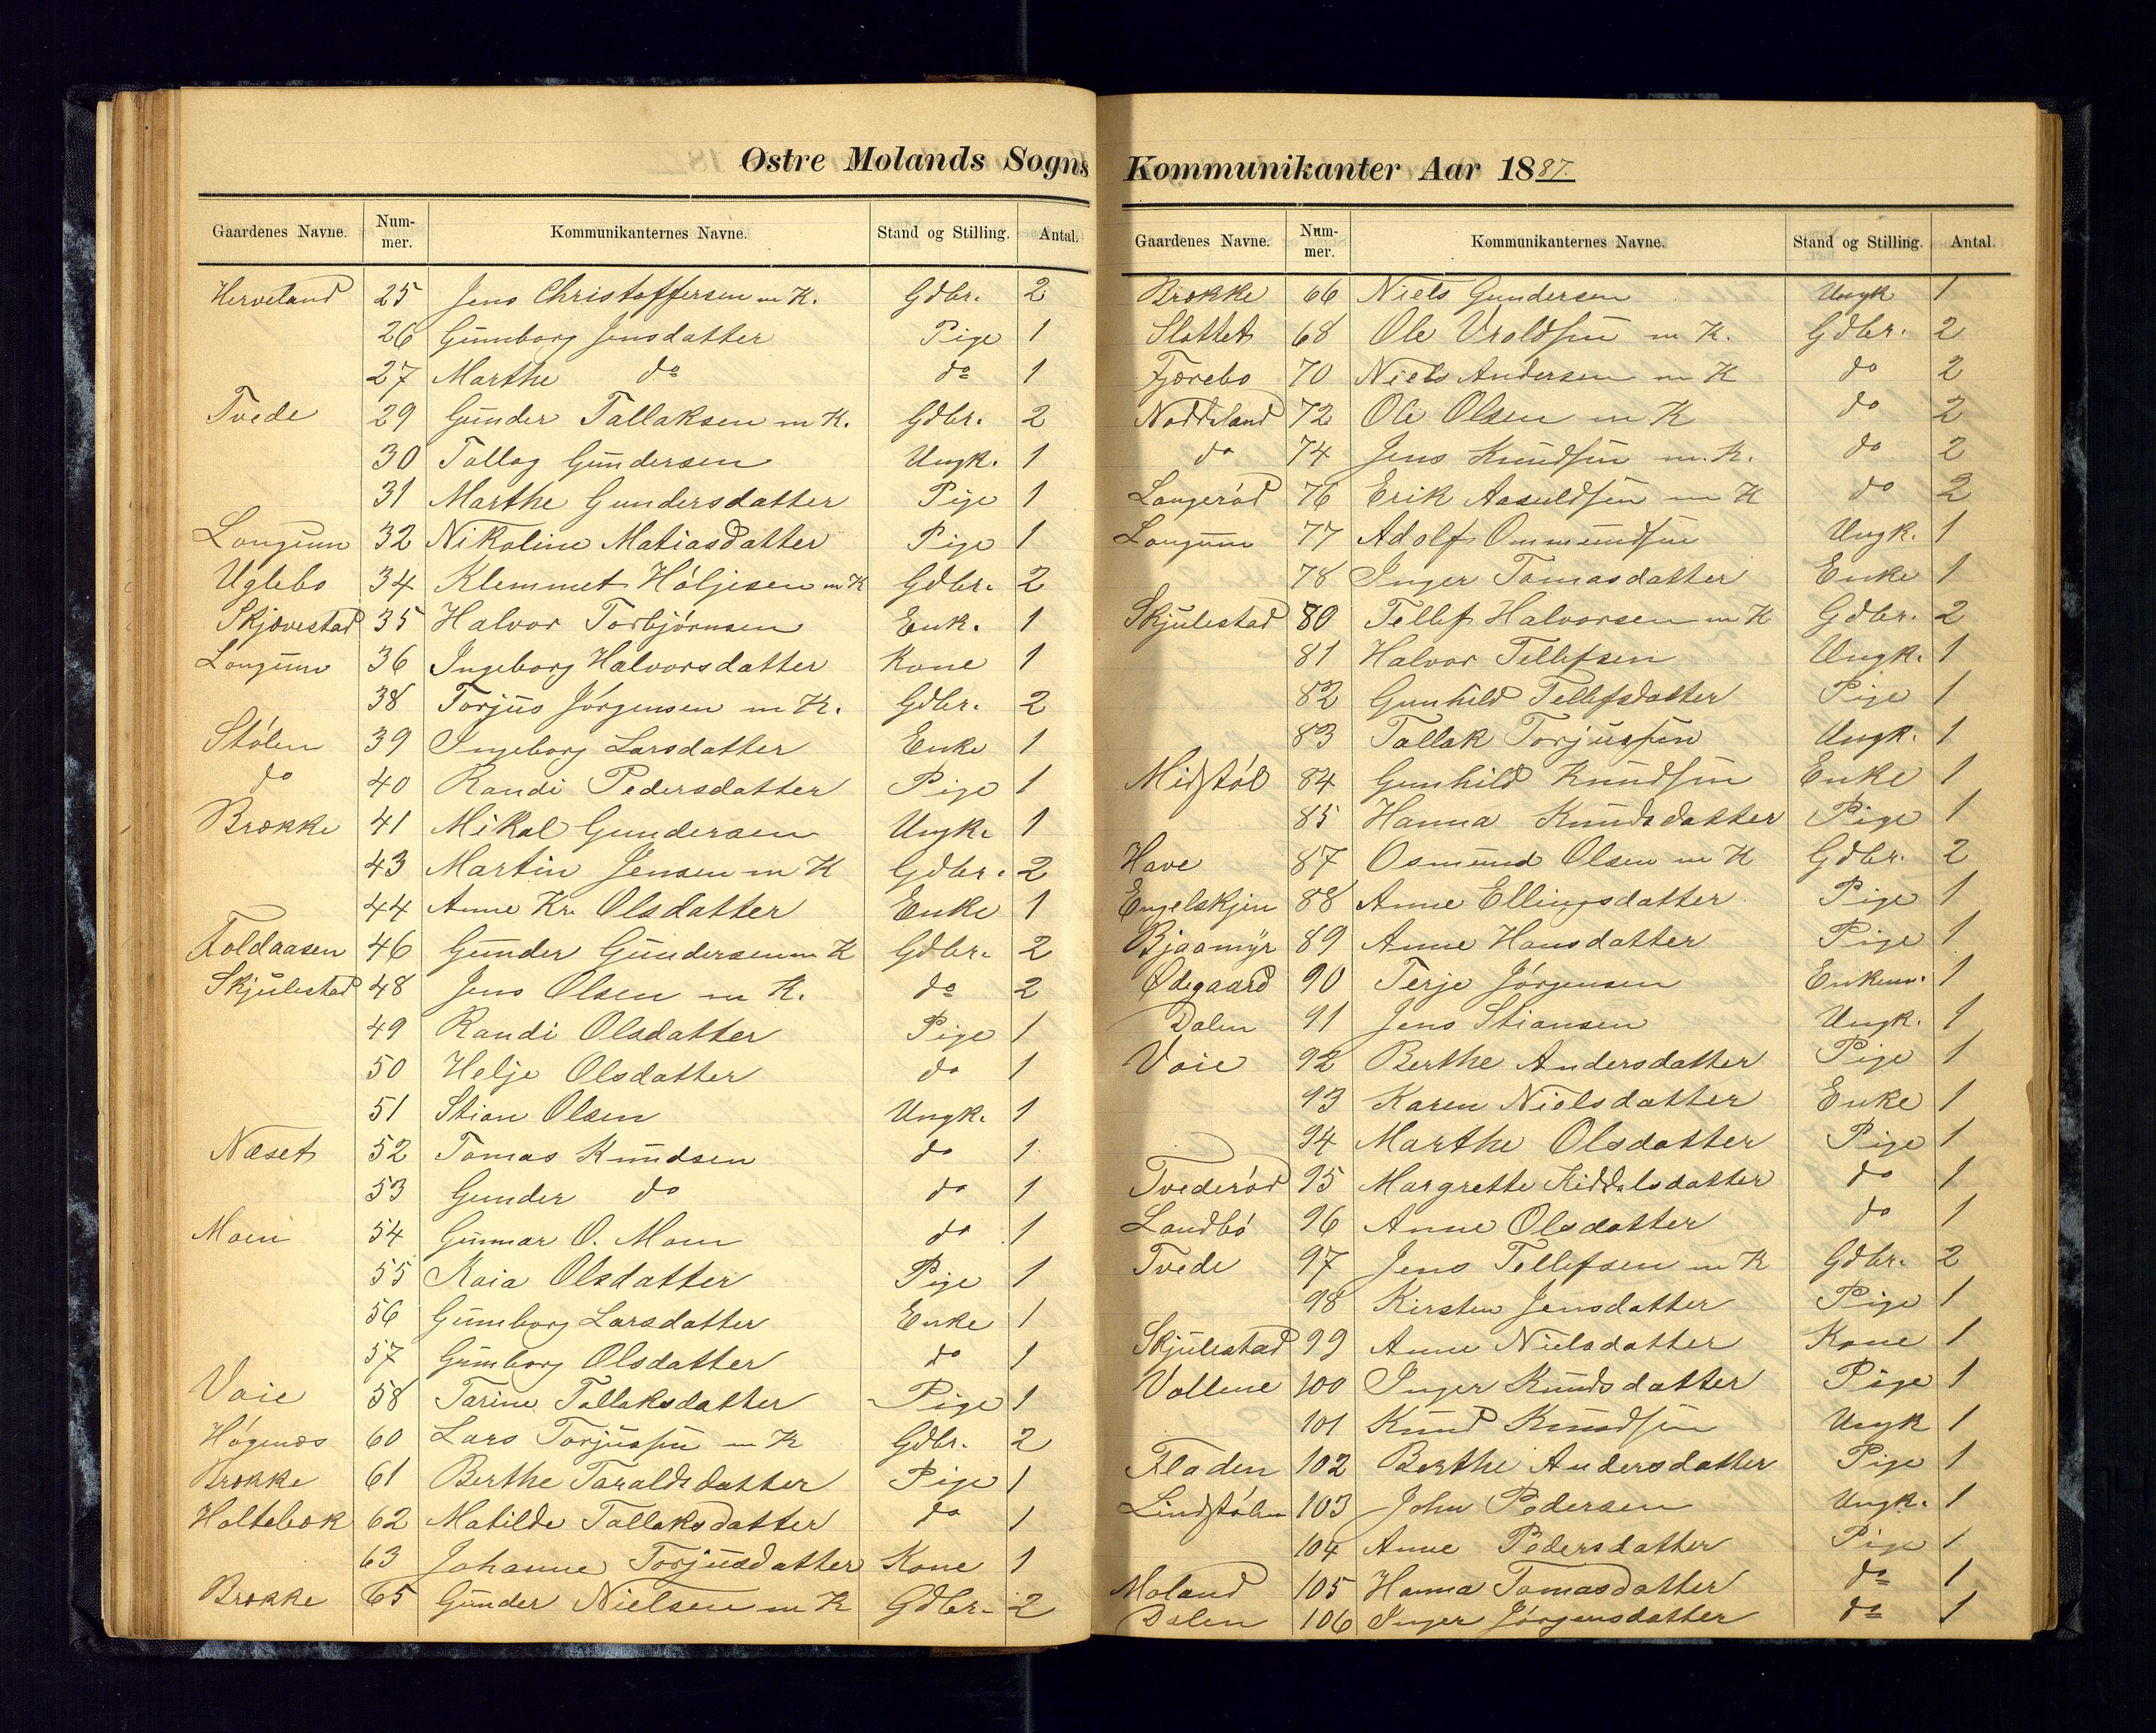 Østre Molands Sogns
Gaardenes Navne. Num-mer. Kommunikanternes Navne. Stand og Stilling. Antal.
Herveland 25 Jens Christoffersen m K. Gdbr. 2
26 Gunborg Jensdatter Pige 1
27 Marthe do do 1
Tvede 29 Gunder Tallaksen m K. Gdbr. 2
30 Tallag Gundersen Ungk. 1
31 Marthe Gundersdatter Pige 1
Longum 32 Nikoline Matiasdatter Pige 1
Uglebo 34 Klemmet Høljesen m K Gdbr. 2
Skjævestad 35 Halvor Torbjørnsen Enk. 1
Longum 36 Ingeborg Halvorsdatter Kone 1
38 Torjus Jørgensen m K. Gdbr. 2
Stølen 39 Ingeborg Larsdatter Enke 1
do 40 Randi Pedersdatter Pige 1
Brække 41 Mikal Gundersen Ungk. 1
43 Martin Jensen m K Gdbr. 2
44 Anne Kr. Olsdatter Enke 1
Foldaasen 46 Gunder Gundersen m K Gdbr. 2
Skjulestad 48 Jens Olsen m K. do 2
49 Randi Olsdatter Pige 1
50 Helje Olsdatter do 1
51 Stian Olsen Ungk. 1
Næset 52 Tomas Knudsen do 1
53 Gunder do do 1
Moen 54 Gunnar O. Moen do 1
55 Kaia Olsdatter Pige 1
56 Gunborg Larsdatter Enke 1
57 Gunborg Olsdatter do 1
Voie 58 Tarine Tallaksdatter Pige 1
Høgenæs 60 Lars Torjussen m K Gdbr. 2
Brække 61 Berthe Taraldsdatter Pige 1
Holtebæk 62 Matilde Tallaksdatter do 1
63 Johanne Torjusdatter Kone 1
Brække 65 Gunder Nielsen m K Gdbr. 2
Kommunikanter Aar 1887.
Gaardenes Navne. Num-mer. Kommunikanternes Navne. Stand og Stilling. Antal.
Brække 66 Niels Gundersen Ungk 1
Slottet 68 Ole Vroldsen m K. Gdbr. 2
Fjærebo 70 Niels Andersen m K do 2
Noddeland 72 Ole Olsen m K do 2
do 74 Jens Knudsen m. K. do 2
Langerød 76 Erik Aasuldsen m K do 2
Longum 77 Adolf Ommundsen Ungk. 1
78 Inger Tomasdatter Enke 1
Skjulestad 80 Tellef Halvorsen m K Gdbr. 2
81 Halvor Tellefsen Ungk. 1
82 Gunhild Tellefsdatter Pige 1
83 Tallak Torjussen Ungk. 1
Midstøl 84 Gunhild Knudsen Enke 1
85 Hanna Knudsdatter Pige 1
Have 87 Osmund Olsen m K Gdbr. 2
Engelskjøn 88 Anne Ellingsdatter Pige 1
Bjaamyr 89 Anne Hansdatter Pige 1
Ødegaard 90 Terje Jørgensen Enkem. 1
Dalen 91 Jens Stiansen Ungk. 1
Voie 92 Berthe Andersdatter Pige 1
93 Karen Nielsdatter Enke 1
94 Marthe Olsdatter Pige 1
Tvederød 95 Margrethe Kiddelsdatter do 1
Landbø 96 Anne Olsdatter do 1
Tvede 97 Jens Tellefsen m K Gdbr. 2
98 Kirsten Jensdatter Pige 1
Skjulestad 99 Anne Nielsdatter Kone 1
Vollene 100 Inger Knudsdatter Pige 1
101 Knud Knudsen Ungk 1
Fladen 102 Berthe Andersdatter Pige 1
Lindstølen 103 John Pedersen Ungk. 1
104 Anne Pedersdatter Pige 1
Moland 105 Hanna Tomasdatter do 1
Dalen 106 Inger Jørgensdatter do 1